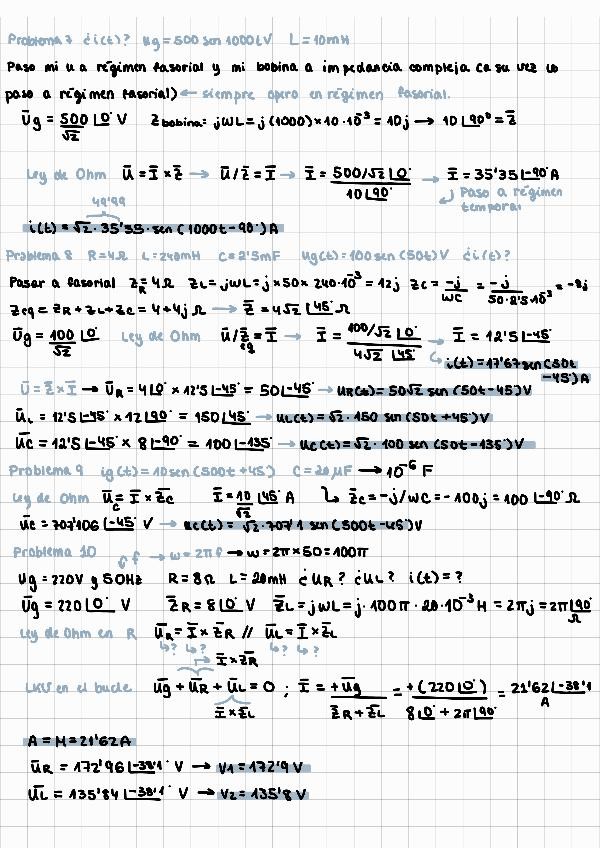 Problema 7 ¿i(t)? Ug = 500 sen 1000t V L = 10mH
Paso mi u a régimen fasorial y mi bobina a impedancia compleja (a su vez lo
paso a régimen fasorial) ← siempre opero en régimen fasorial.
Ūg = 500/√2 |0° V Z bobina: jWL = j(1000)×10·10⁻³ = 10j → 10|90° = Z̄
Ley de Ohm Ū = Ī × Z̄ → Ū/Z̄ = Ī → Ī = 500/√2 |0° / 10|90° → Ī = 35'35|-90° A
↳ Paso a régimen
temporal
49'99
i(t) = √2 · 35'35 · sen (1000t - 90°) A
Problema 8 R=4Ω L=240mH C=2'5mF Ug(t) = 100 sen (50t) V ¿i(t)?
Pasar a fasorial ZR = 4Ω ZL = jWL = j×50×240·10⁻³ = 12j ZC = -j/WC = -j/50·2'5·10⁻³ = -8j
Zeq = ZR + ZL + ZC = 4 + 4j Ω → Z̄ = 4√2 |45° Ω
Ūg = 100/√2 |0° Ley de Ohm Ū/Z̄eq = Ī → Ī = 100/√2 |0° / 4√2 |45° → Ī = 12'5|-45°
↳ i(t) = 17'67 sen (50t
-45°) A
Ū = Z̄ × Ī → ŪR = 4|0° × 12'5|-45° = 50|-45° → UR(t) = 50√2 sen (50t - 45°) V
ŪL = 12'5|-45° × 12|90° = 150|45° → UL(t) = √2 · 150 sen (50t + 45°) V
ŪC = 12'5|-45° × 8|-90° = 100|-135° → UC(t) = √2 · 100 sen (50t - 135°) V
Problema 9 ig(t) = 10 sen (500t + 45°) C = 20 µF → 10⁻⁶ F
Ley de Ohm ŪC = Ī × Z̄C Ī = 10/√2 |45° A ↳ Z̄C = -j/WC = -100j = 100|-90° Ω
ŪC = 707'106|-45° V → UC(t) = √2 · 707'1 sen (500t - 45°) V
Problema 10 f → w = 2πf → w = 2π × 50 = 100π
Ug = 220V y 50Hz R = 8Ω L = 20mH ¿UR? ¿UL? i(t) = ?
Ūg = 220|0° V Z̄R = 8|0° V Z̄L = jWL = j·100π·20·10⁻³ H = 2πj = 2π|90° Ω
Ley de Ohm en R ŪR = Ī × Z̄R // ŪL = Ī × Z̄L
↳? ↳? ↳? ↳?
→ Ī × Z̄R
LKV en el bucle Ūg + ŪR + ŪL = 0 ; Ī = +Ūg / Z̄R + Z̄L = +(220|0°) / 8|0° + 2π|90° = 21'62|-38'1° A
Ī × Z̄L
A = M = 21'62 A
ŪR = 172'96|-38'1° V → V1 = 172'9 V
ŪL = 135'84|-38'1° V → V2 = 135'8 V